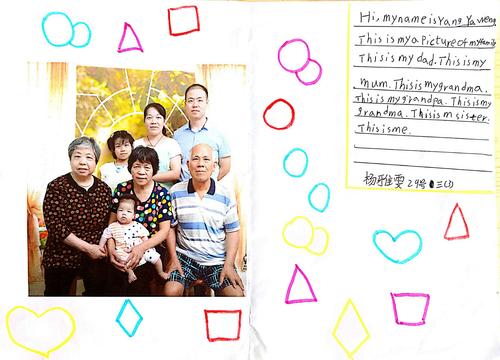 Hi, my name is Yang Ya weng
This is my a Picture of my family
This is my dad. This is my
mum. This is my grandma.
This is my grandpa. This is my
grandma. This is m sister.
This is me.
杨雅雯 29号 三(3)